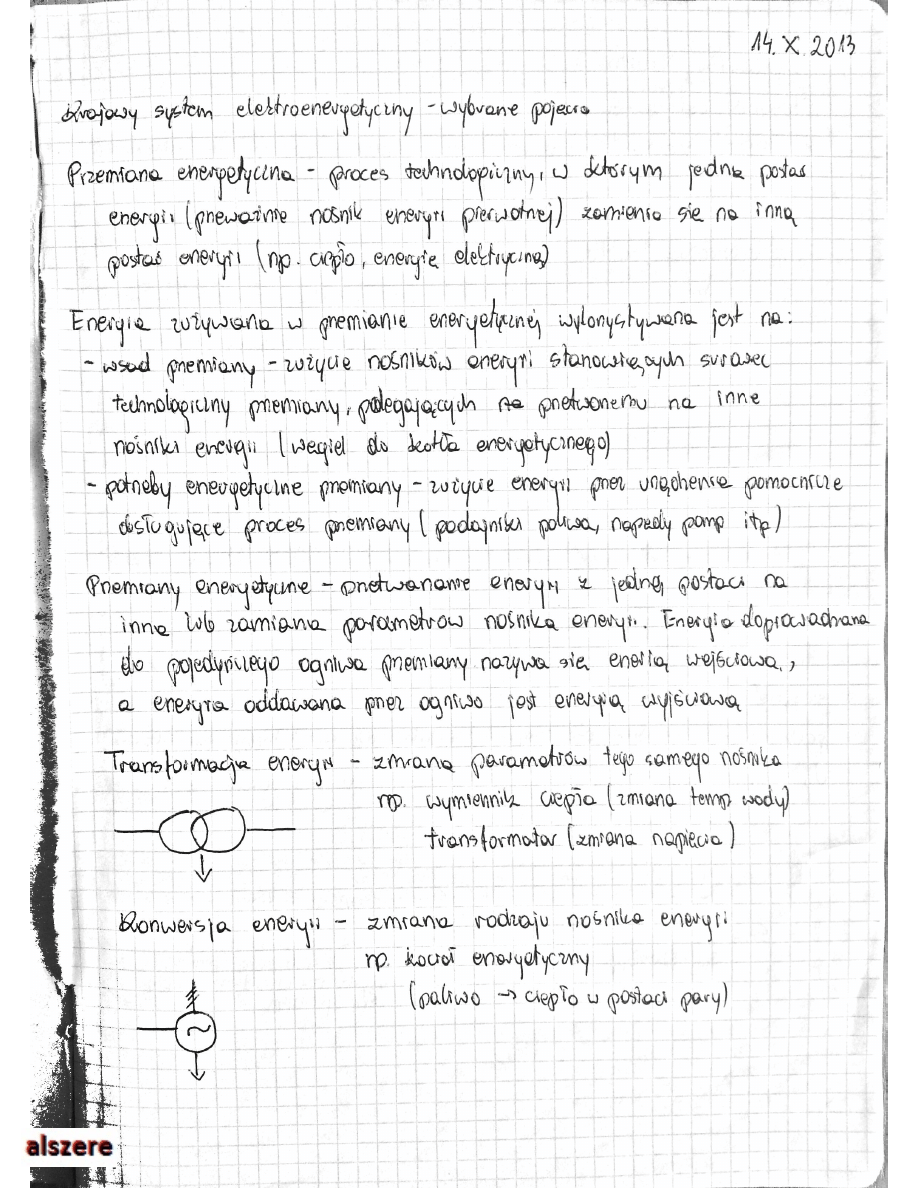 14. X 2013
Krajowy system elektroenergetyczny - wybrane pojęcia
Przemiana energetyczna - proces technologiczny, w którym jedna postać
energii (przeważnie nośnik energii pierwotnej) zamienia się na inną
postać energii (np. ciepło, energię elektryczną)
Energia zużywana w przemianie energetycznej wykorzystywana jest na:
- wsad przemiany - zużycie nośników energii stanowiących surowiec
technologiczny przemiany, polegających na przetworzeniu na inne
nośniki energii (węgiel do kotła energetycznego)
- potrzeby energetyczne przemiany - zużycie energii przez urządzenia pomocnicze
obsługujące proces przemiany (podajniki paliwa, napędy pomp itp)
Przemiany energetyczne - przetwarzanie energii z jednej postaci na
inną lub zamiana parametrów nośnika energii. Energia doprowadzana
do pojedynczego ogniwa przemiany nazywa się enerią wejściową,
a energia oddawana przez ogniwo jest energią wyjściową
Transformacja energii - zmiana parametrów tego samego nośnika
np. wymiennik ciepła (zmiana temp wody)
transformator (zmiana napięcia)
Konwersja energii - zmiana rodzaju nośnika energii
np. kocioł energetyczny
(paliwo → ciepło w postaci pary)
~
alszere